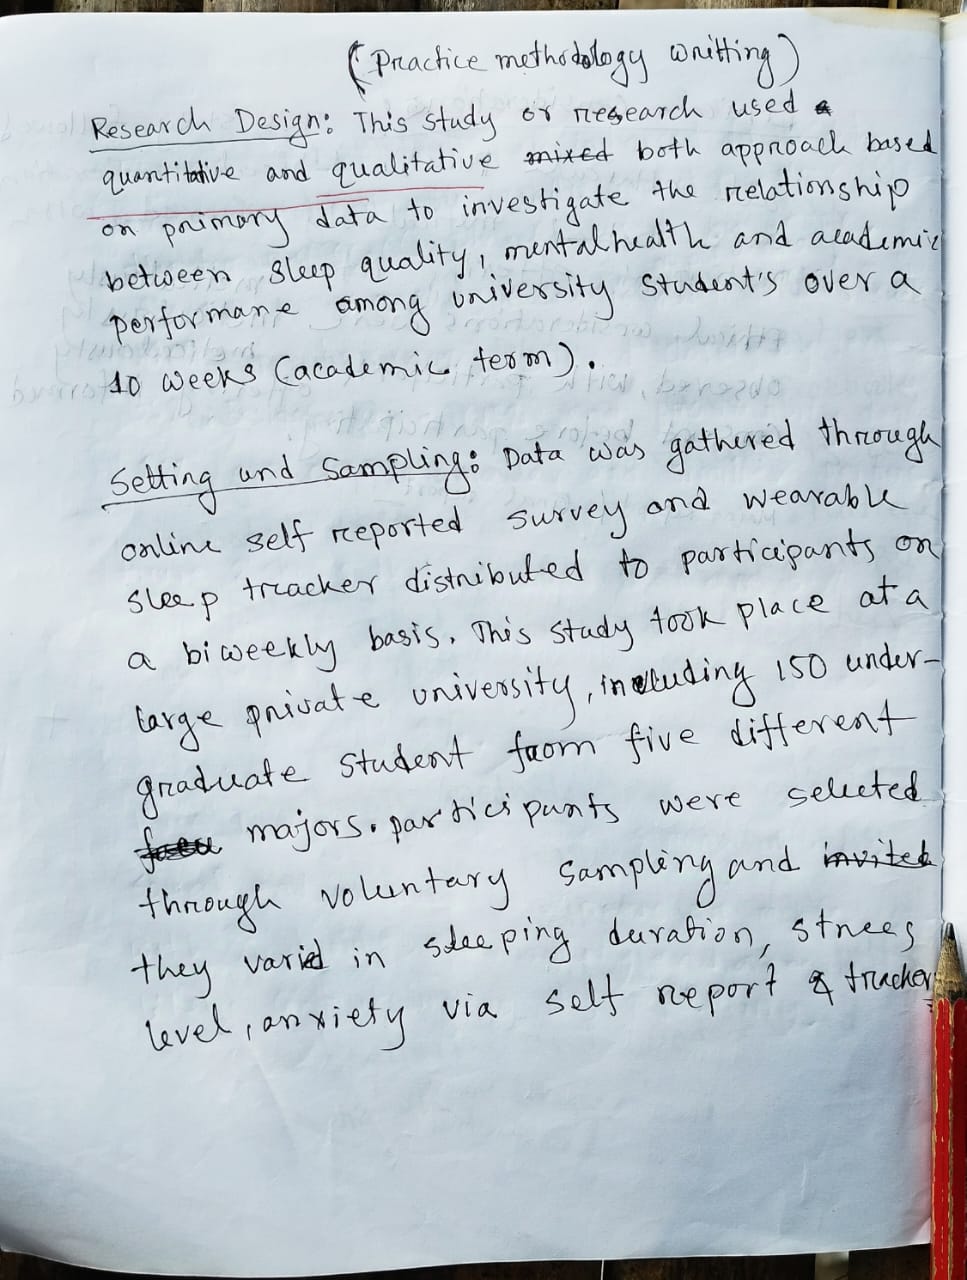 (Practice methodology writting)
Research Design: This study or research used a
quantitative and qualitative mixed both approach based
on primary data to investigate the relationship
between sleep quality, mentalhealth and academic
performane among university student's over a
10 weeks (academic term).
Setting and Sampling: Data was gathered through
online self reported survey and wearable
sleep tracker distributed to participants on
a biweekly basis. This study took place at a
large private university, including 150 under-
graduate student from five different
majors. participants were selected
through voluntary sampling and invited
they varid in sleeping duration, strees
level, anxiety via self report & tracker